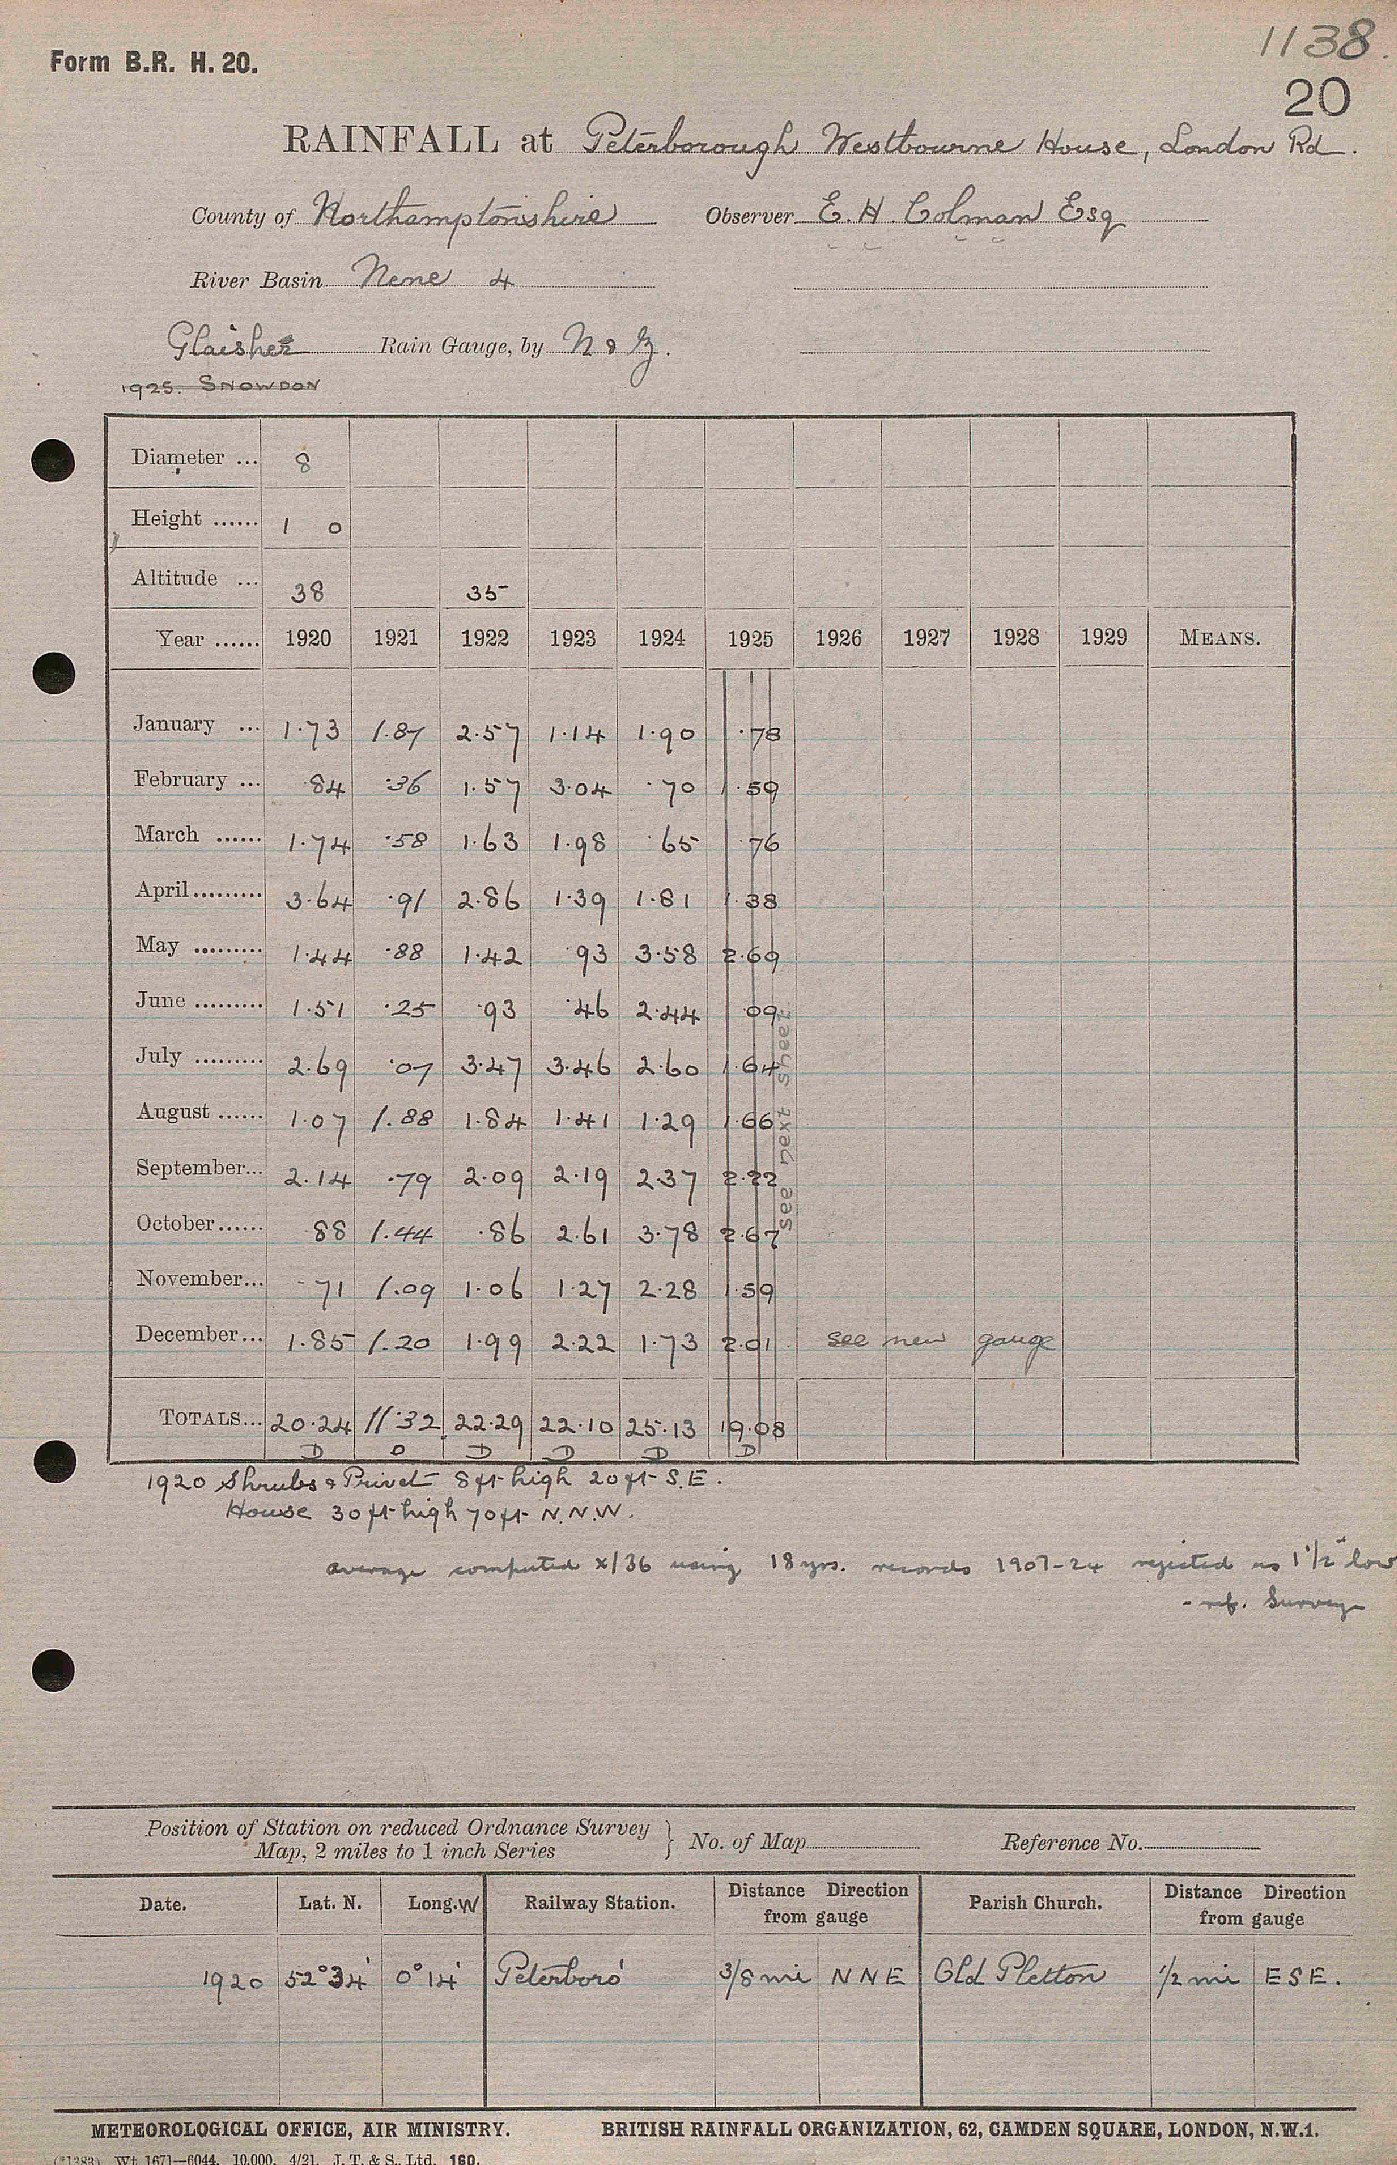 1138.
Form B.R. H. 20.
20
RAINFALL at Peterborough Westbourne House, London Rd.
County of Northamptonshire Observer E. H. Colman Esq
River Basin Nene 4
Glaisher Rain Gauge, by N & Z.
1925. SNOWDON
Diameter ... 8
Height ...... 1 0
Altitude ... 38 35
Year ...... 1920 1921 1922 1923 1924 1925 1926 1927 1928 1929 MEANS.
January ... 1.73 1.87 2.57 1.14 1.90 .78
February ... .84 .36 1.57 3.04 .70 1.59
March ...... 1.74 .58 1.63 1.98 .65 .76
April......... 3.64 .91 2.86 1.39 1.81 1.38
May ......... 1.44 .88 1.42 .93 3.58 2.69
June ......... 1.51 .25 .93 .46 2.44 .09
July ......... 2.69 .07 3.47 3.46 2.60 1.64
August ...... 1.07 1.88 1.84 1.41 1.29 1.66
September... 2.14 .79 2.09 2.19 2.37 2.22
October...... .88 1.44 .86 2.61 3.78 2.67
November... .71 1.09 1.06 1.27 2.28 1.59
December... 1.85 1.20 1.99 2.22 1.73 2.01 see new gauge
see next sheet
TOTALS... 20.24 11.32 22.29 22.10 25.13 19.08
D D D D D D
1920 Shrubs & Privet 8 ft high 20 ft S.E.
House 30 ft high 70 ft N.N.W.
average computed x/36 using 18 yrs. records 1907-24 rejected as 1 1/2" low
- ref. Survey
Position of Station on reduced Ordnance Survey
Map, 2 miles to 1 inch Series } No. of Map Reference No.
Date. Lat. N. Long. W Railway Station. Distance Direction from gauge Parish Church. Distance Direction from gauge
1920 52°34' 0°14' Peterboro' 3/8 mi N N E Old Fletton 1/2 mi E S E.
METEOROLOGICAL OFFICE, AIR MINISTRY. BRITISH RAINFALL ORGANIZATION, 62, CAMDEN SQUARE, LONDON, N.W.1.
(*1383) Wt. 1671—6044. 10,000. 4/21. J. T. & S., Ltd. 160.